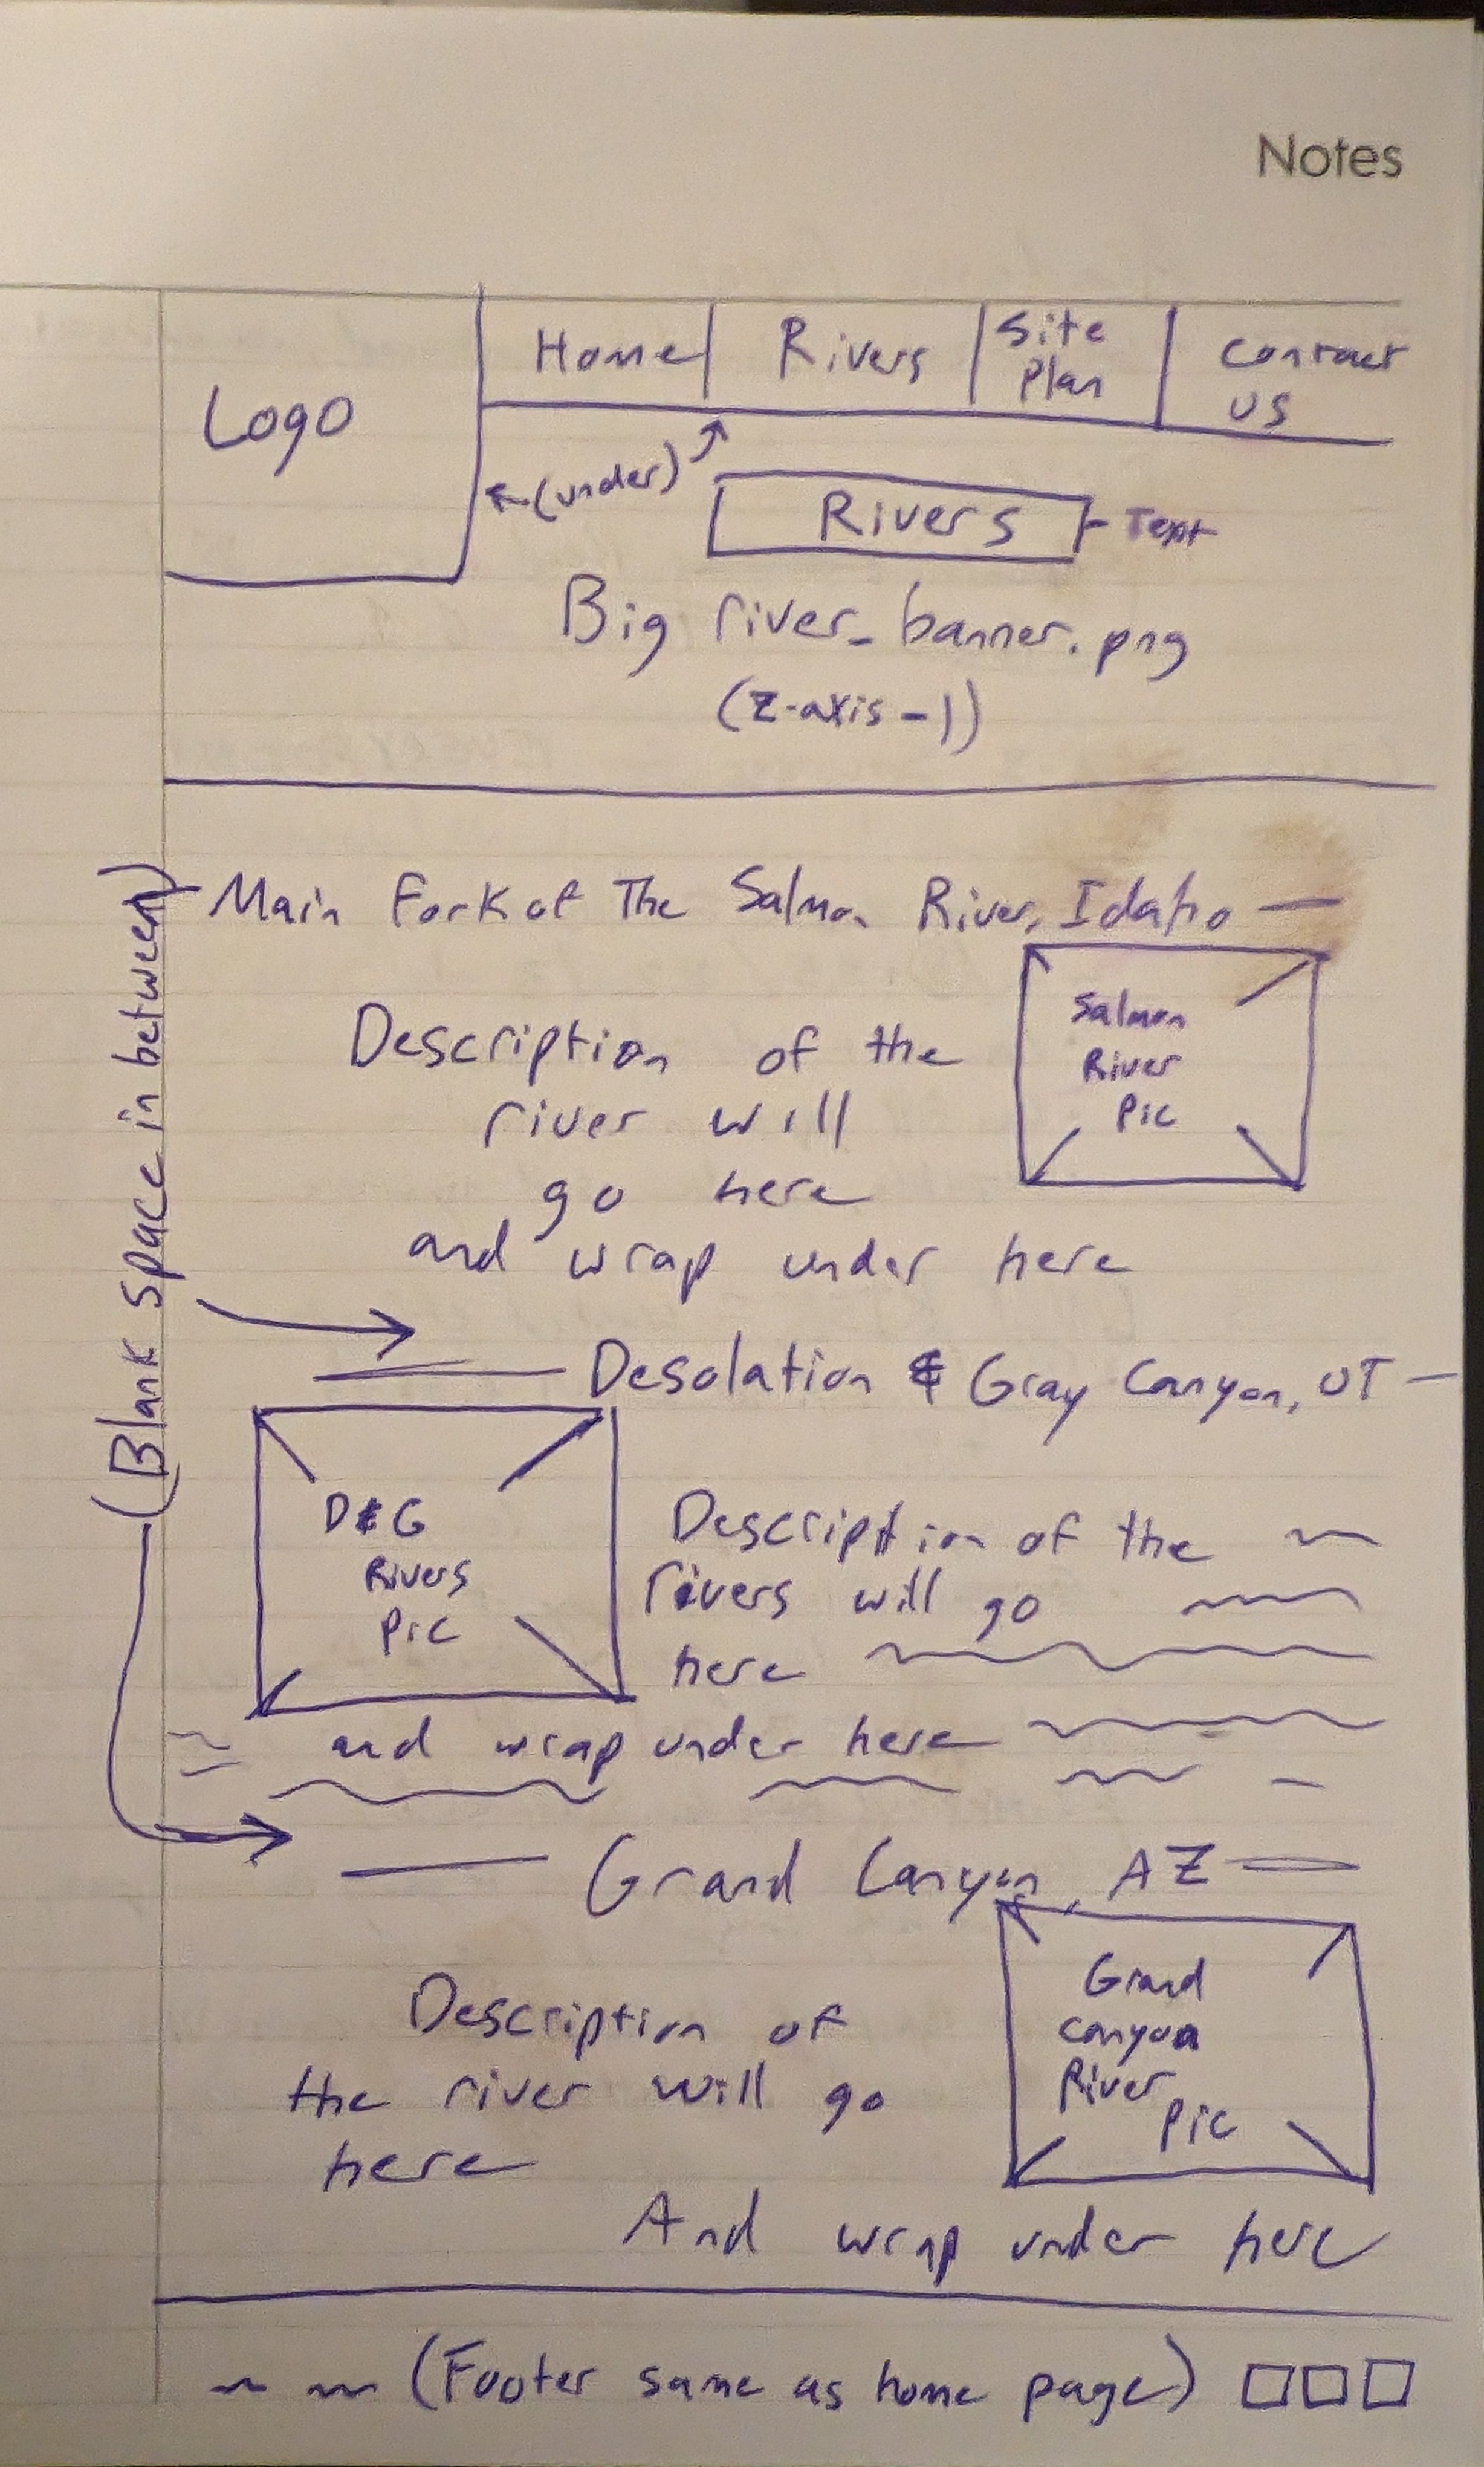 Notes
Logo
Home
Rivers
Site
Plan
Contact
US
(under)
Rivers
Text
Big river_banner.png
(z-axis-1)
(Blank space in between)
Main Fork of The Salmon River, Idaho
Description of the
river will
go here
and wrap under here
Salmon
River
Pic
Desolation & Gray Canyon, UT
D&G
Rivers
Pic
Description of the
rivers will go
here
and wrap under here
Grand Canyon, AZ
Description of
the river will go
here
And wrap under here
Grand
Canyon
River
Pic
(Footer same as home page)